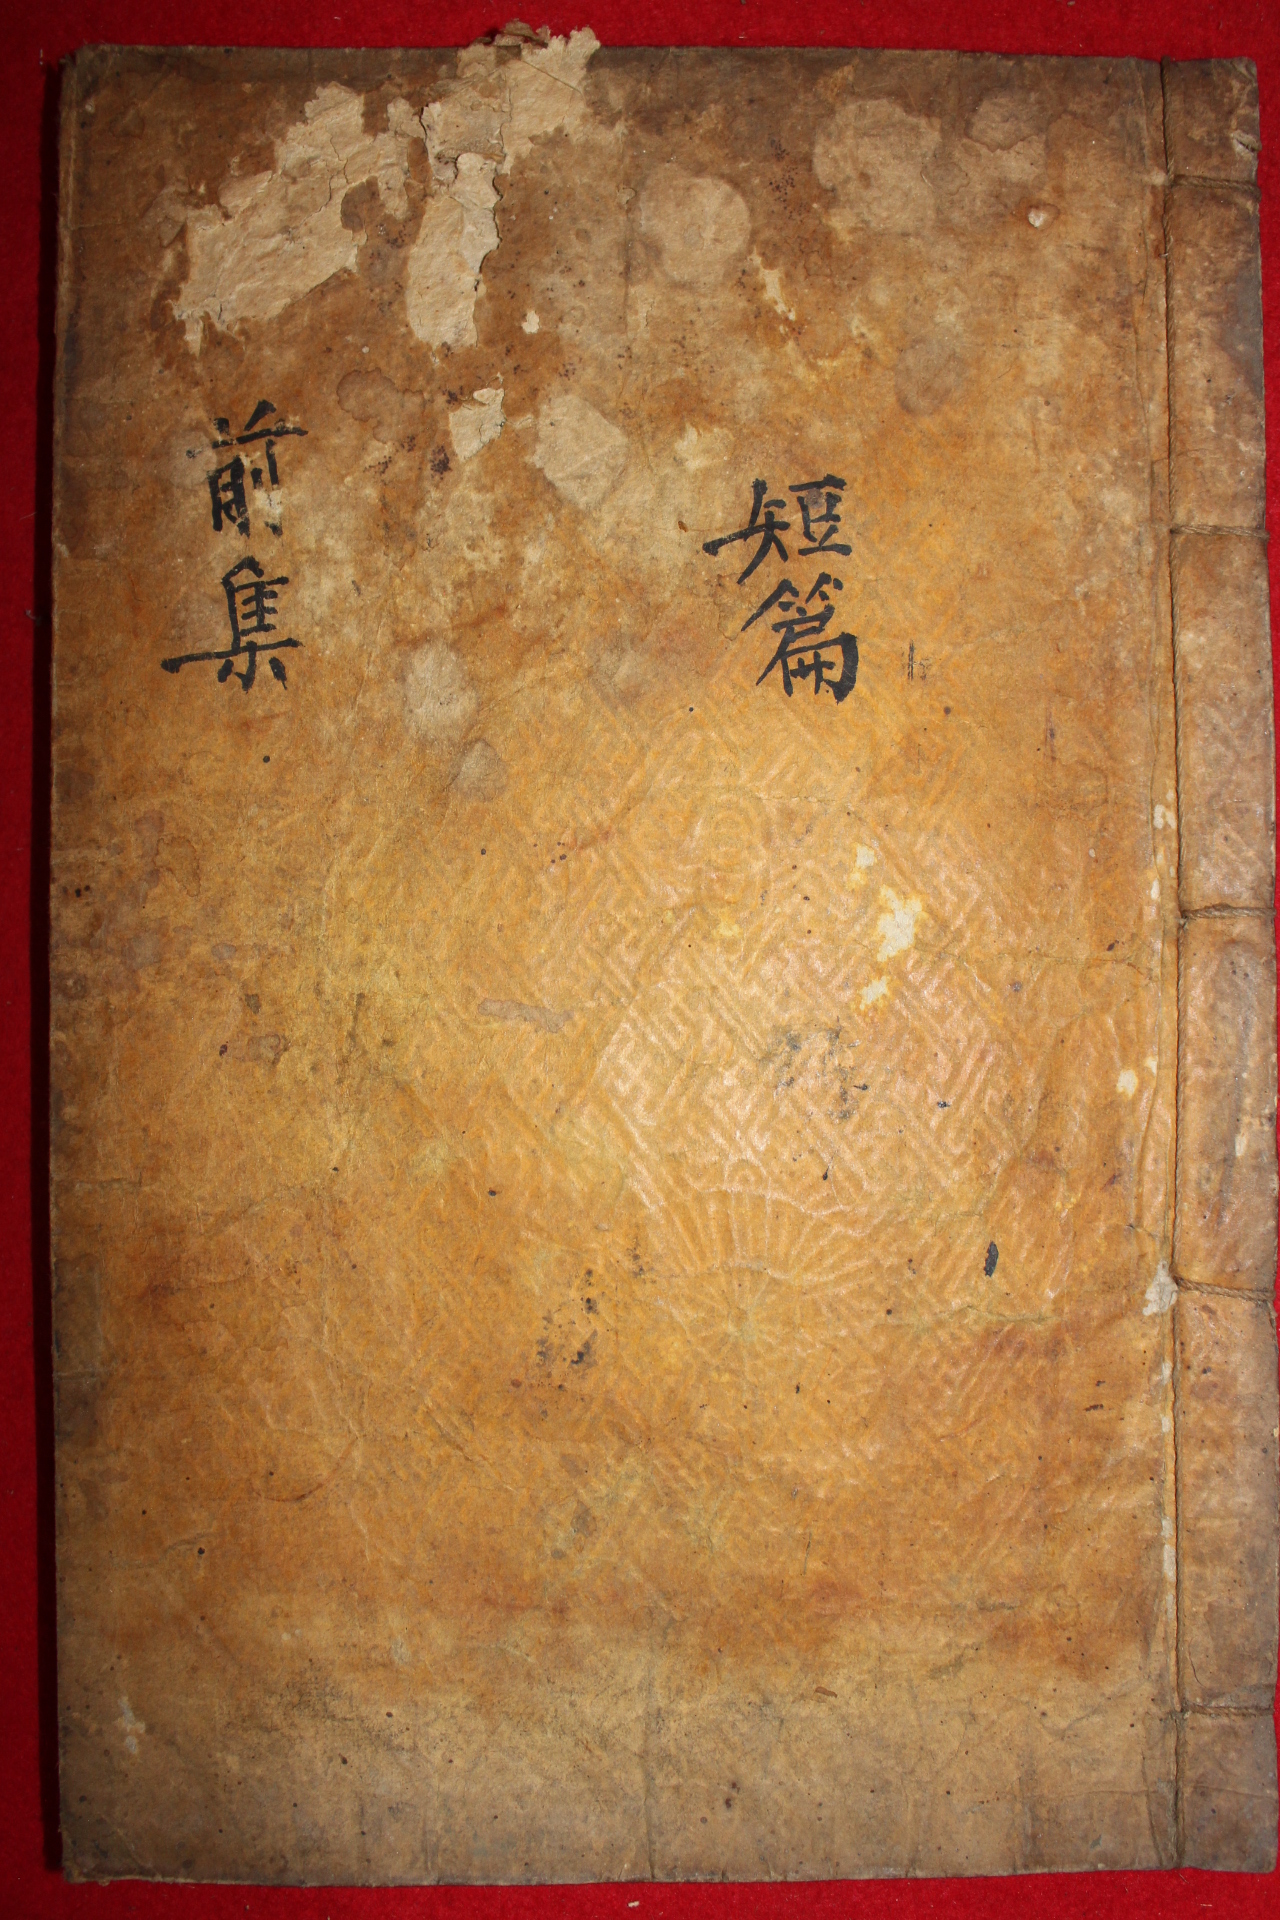 短篇
前集